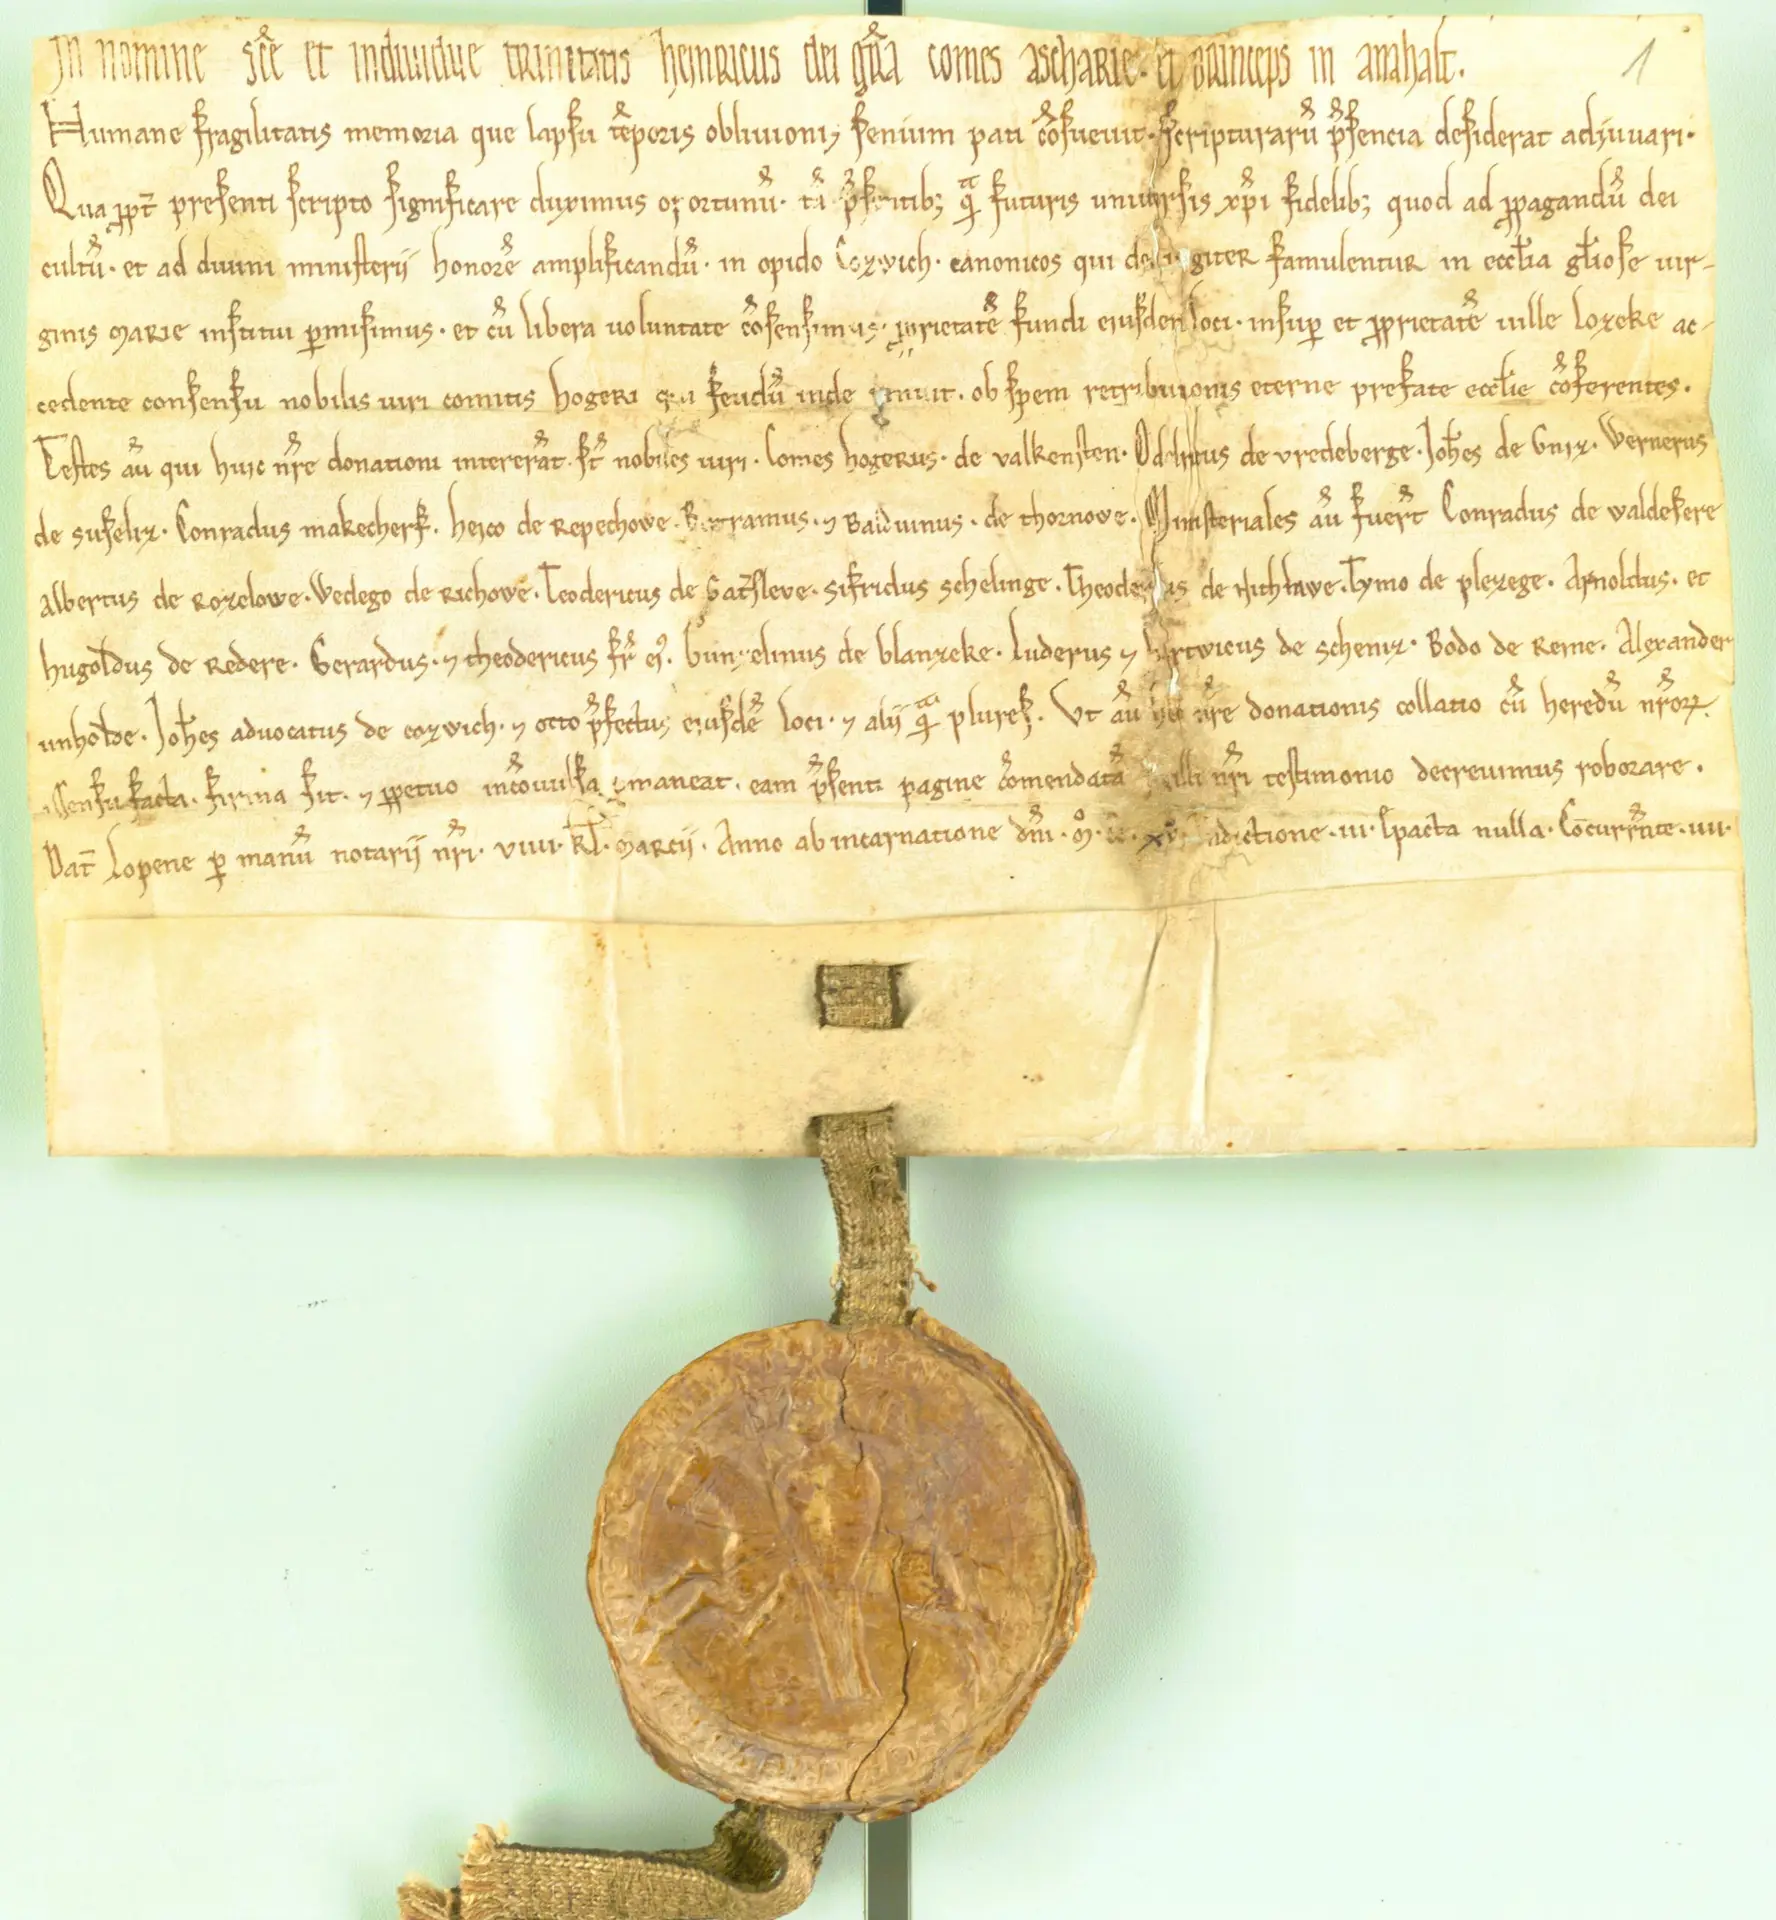 In nomine sc̄e et individue trinitatis heinricus dei gr̄a comes ascharie. et princeps in anahalt. 1
Humane fragilitatis memoria que lapsu tēporis oblivionis senium pati c̄osuevit. scripturarū p̄sencia desiderat adjuvari.
Qua ꝓpt̄ presenti scripto significare duximus oportunū. tā p̄sentib; q̄ᵃ futuris universis xp̄i fidelib; quod ad ꝓpagandū dei
cultū. et ad divini ministerij honorē amplificandū. in opido Cozwich. canonicos qui giter famulentur in eccl̄ia gl̄iose vir-
ginis marie institui ꝑmisimus. et cū libera voluntate c̄osensimus. ꝓprietatē fundi ejusdem loci. insuꝑ et ꝓprietatē ville lozeke ac-
cedente consensu nobilis viri comitis hogeri qui feudū inde tenuit. ob spem retributionis eterne prefate eccl̄ie c̄oferentes.
Testes aū qui huic nr̄e donationi intererāt. st̄ nobiles viri. Comes hogerus. de valkensten. Odelricus de vredeberge. Joh̄es de Gniz. Wernerus
de suseliz. Conradus makecherf. heico de Repechowe. Bertramus. ⁊ Balduinus. de thornowe. Ministeriales aū fuer̄t Conradus de valdesere
Albertus de Rozelowe. Wedego de Richowe. Teodericus de Gat̄sleve. Sifridus schelinge. Theodericus de Tymo de plezege. Arnoldus. et
hugol̄dus de Redere. Gerardus. ⁊ theodericus fr̄ ejꝰ. Gunzelinus de blanzeke. Luderus ⁊ hartwicus de scheniz. Bodo de Reme. Alexander
unhol̄de. Joh̄es advocatus de cozwich. ⁊ otto p̄fectus ejusdē loci. ⁊ alij q̄ᵃ plures. Ut aū hec nr̄e donationis collatio cū heredū nr̄oꝝ
assensu facta. firma sit. ⁊ ꝑpetuo inc̄ovulsa ꝑmaneat. eam p̄senti pagine c̄omendatā sigilli nr̄i testimonio decrevimus roborare.
Dat̄ Lopene ꝑ manū notarij nr̄i. viiii. kl̄. marcij. Anno ab incarnatione dn̄i. ꝳ. cͨ. xv. indictione. iii. Epacta nulla. C̄ocurr̄nte. iii.